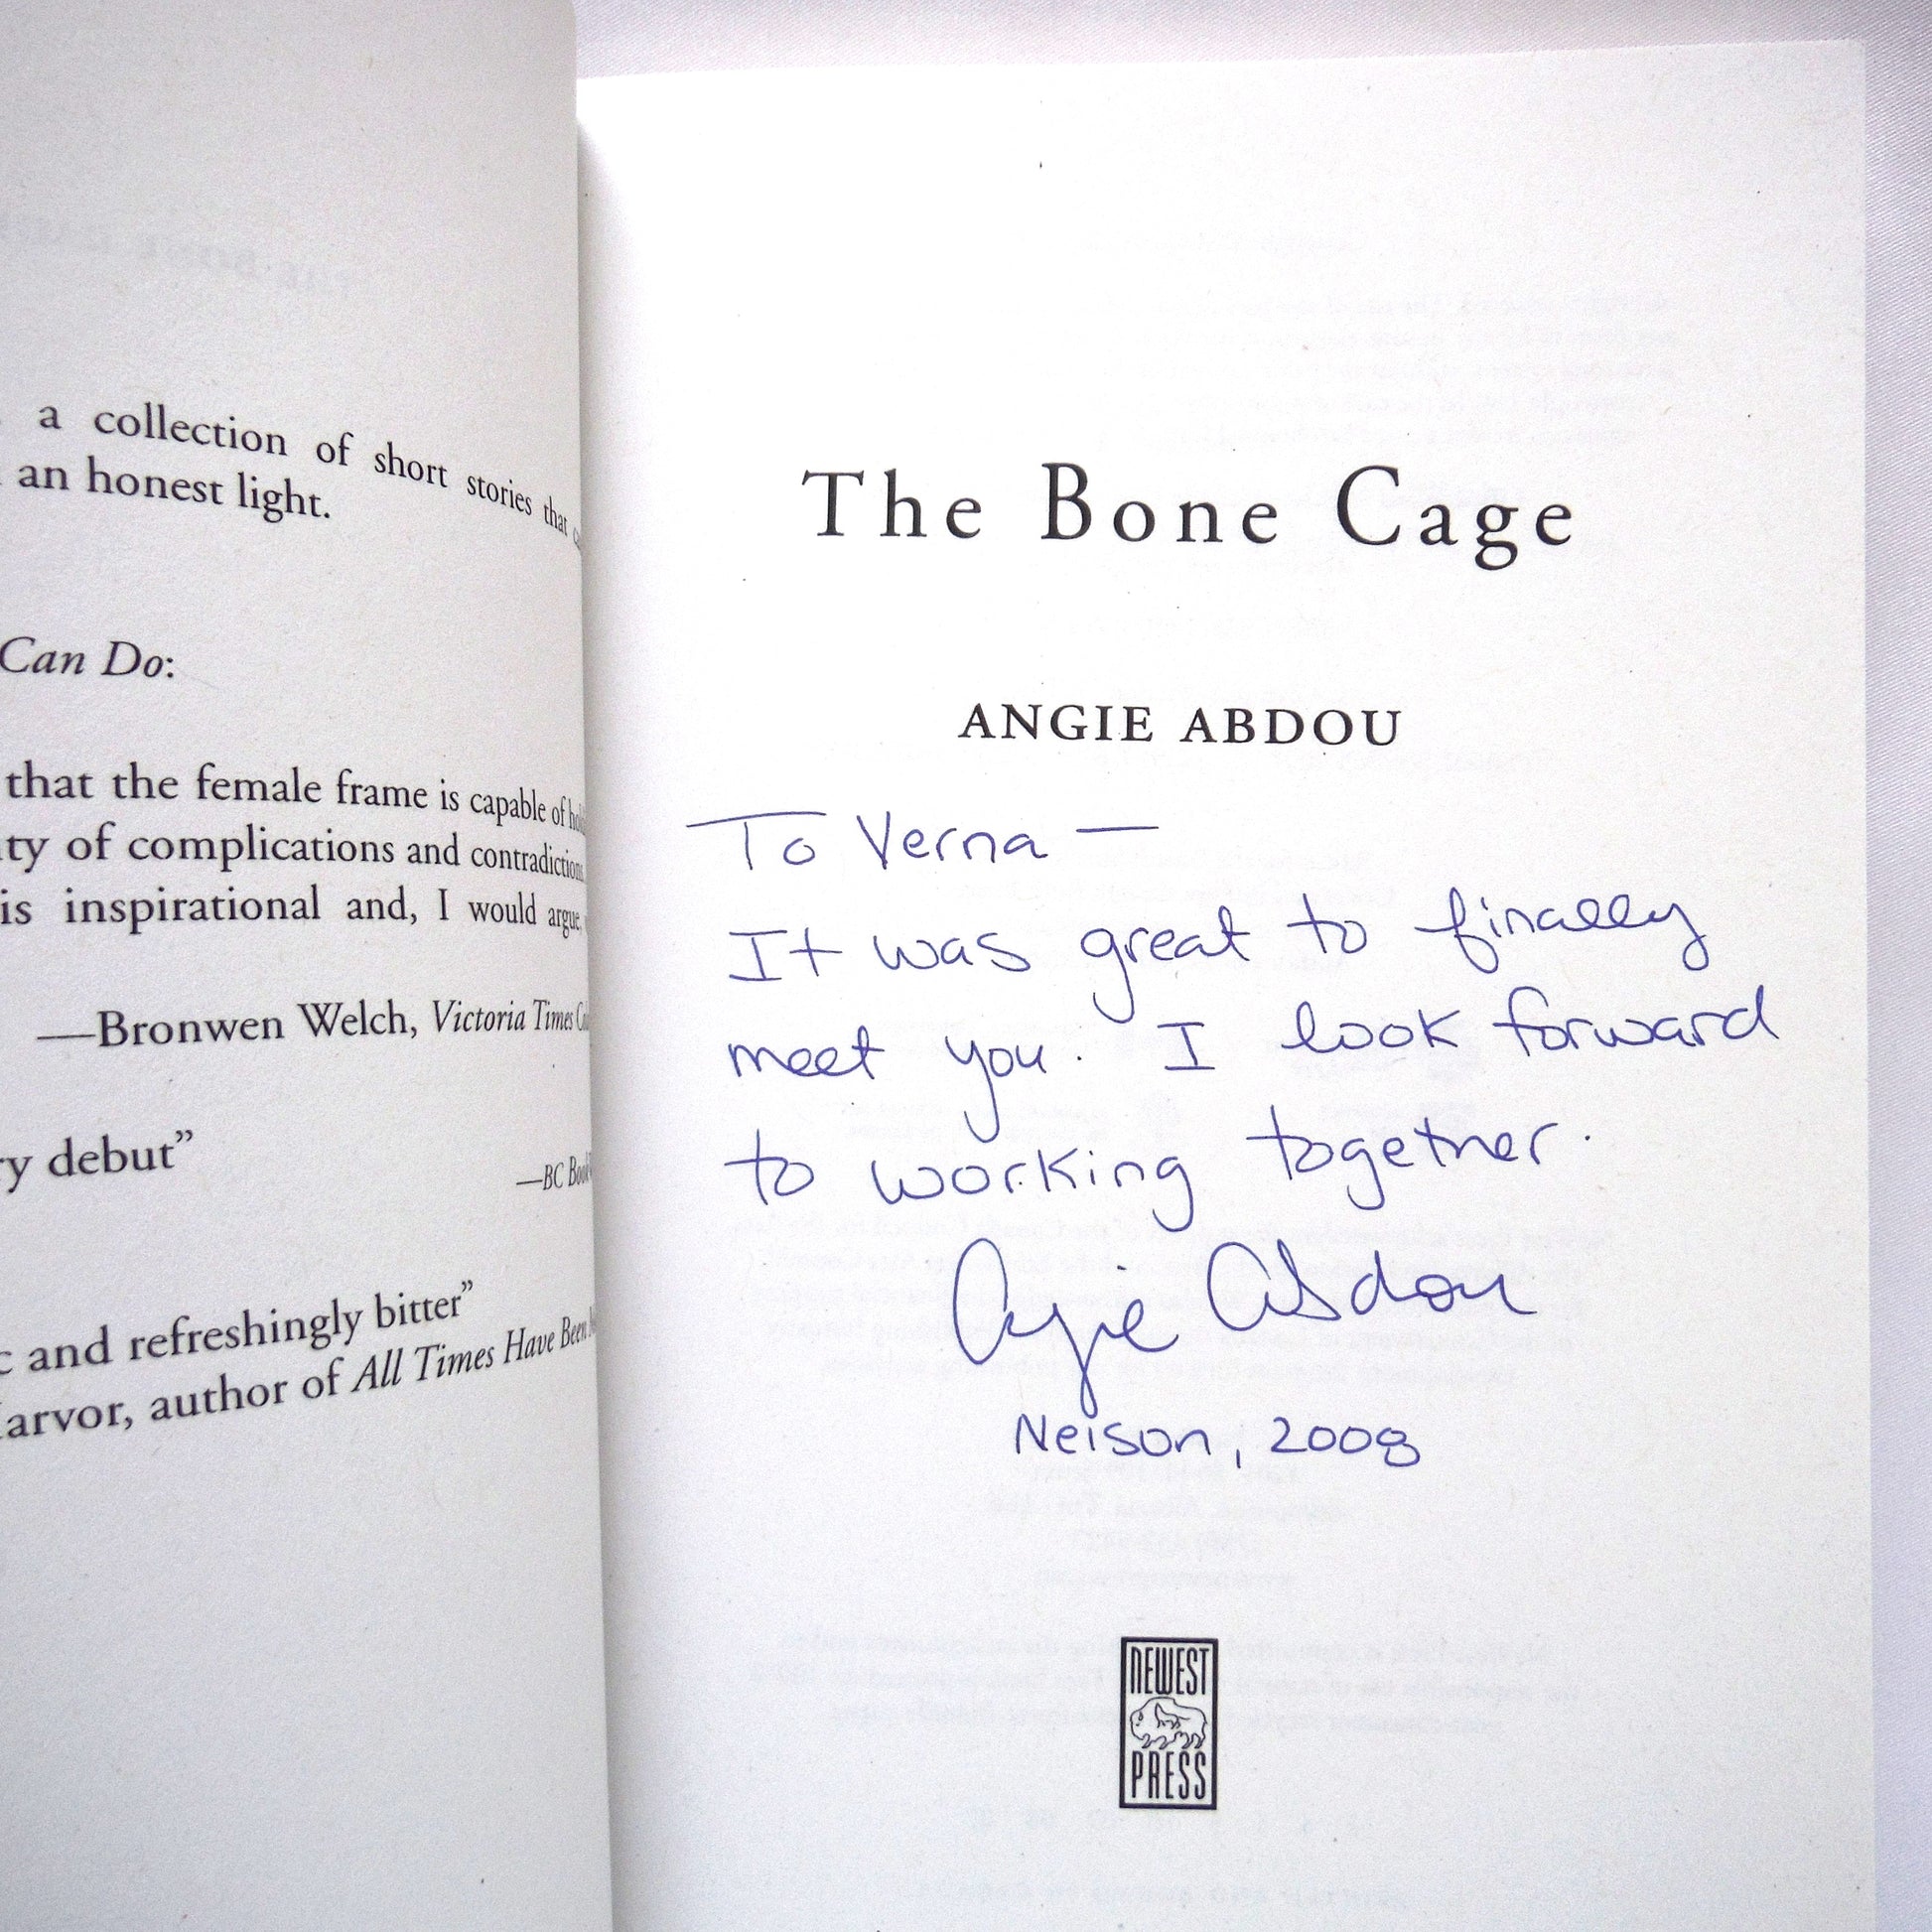 a collection of short stories that
an honest light.
Can Do:
that the female frame is capable of
ty of complications and contradictions
is inspirational and, I would argue,
—Bronwen Welch, Victoria Times
ry debut”
—BC Book
c and refreshingly bitter”
arvor, author of All Times Have Been
The Bone Cage
ANGIE ABDOU
To Verna —
It was great to finally
meet you. I look forward
to working together.
Angie Abdou
Nelson, 2008
NEWEST
PRESS